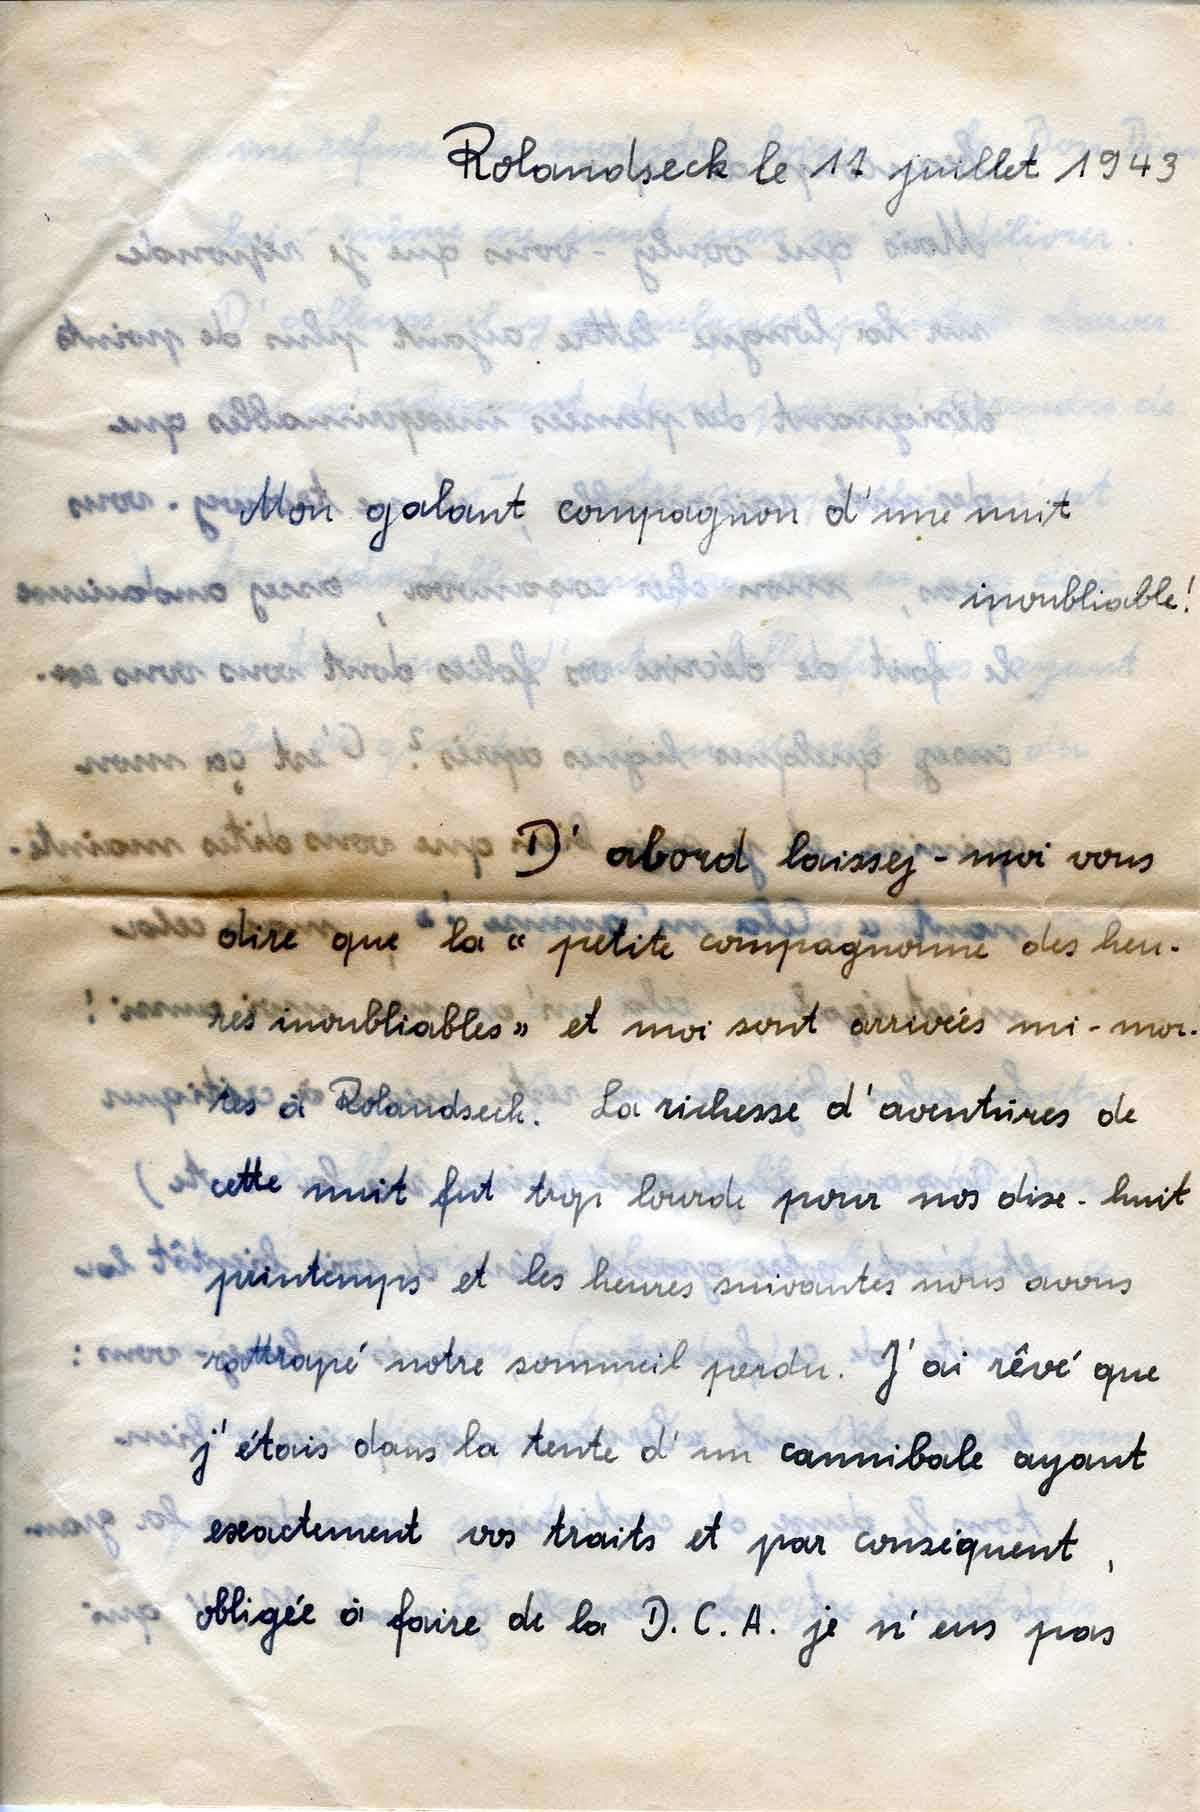 Rolandseck le 11 juillet 1943
Mon galant compagnon d'une nuit
inoubliable!
D'abord laissez-moi vous
dire que la « petite compagnonne des heu-
res inoubliables » et moi sont arrivées mi-mor-
tes à Rolandseck. La richesse d'aventures de
cette nuit fut trop lourde pour nos dixe-huit
printemps et les heures suivantes nous avons
rattrapé notre sommeil perdu. J'ai rêvé que
j'étais dans la tente d'un cannibale ayant
exactement vos traits et par conséquent,
obligée à faire de la D.C.A. je n'eus pas